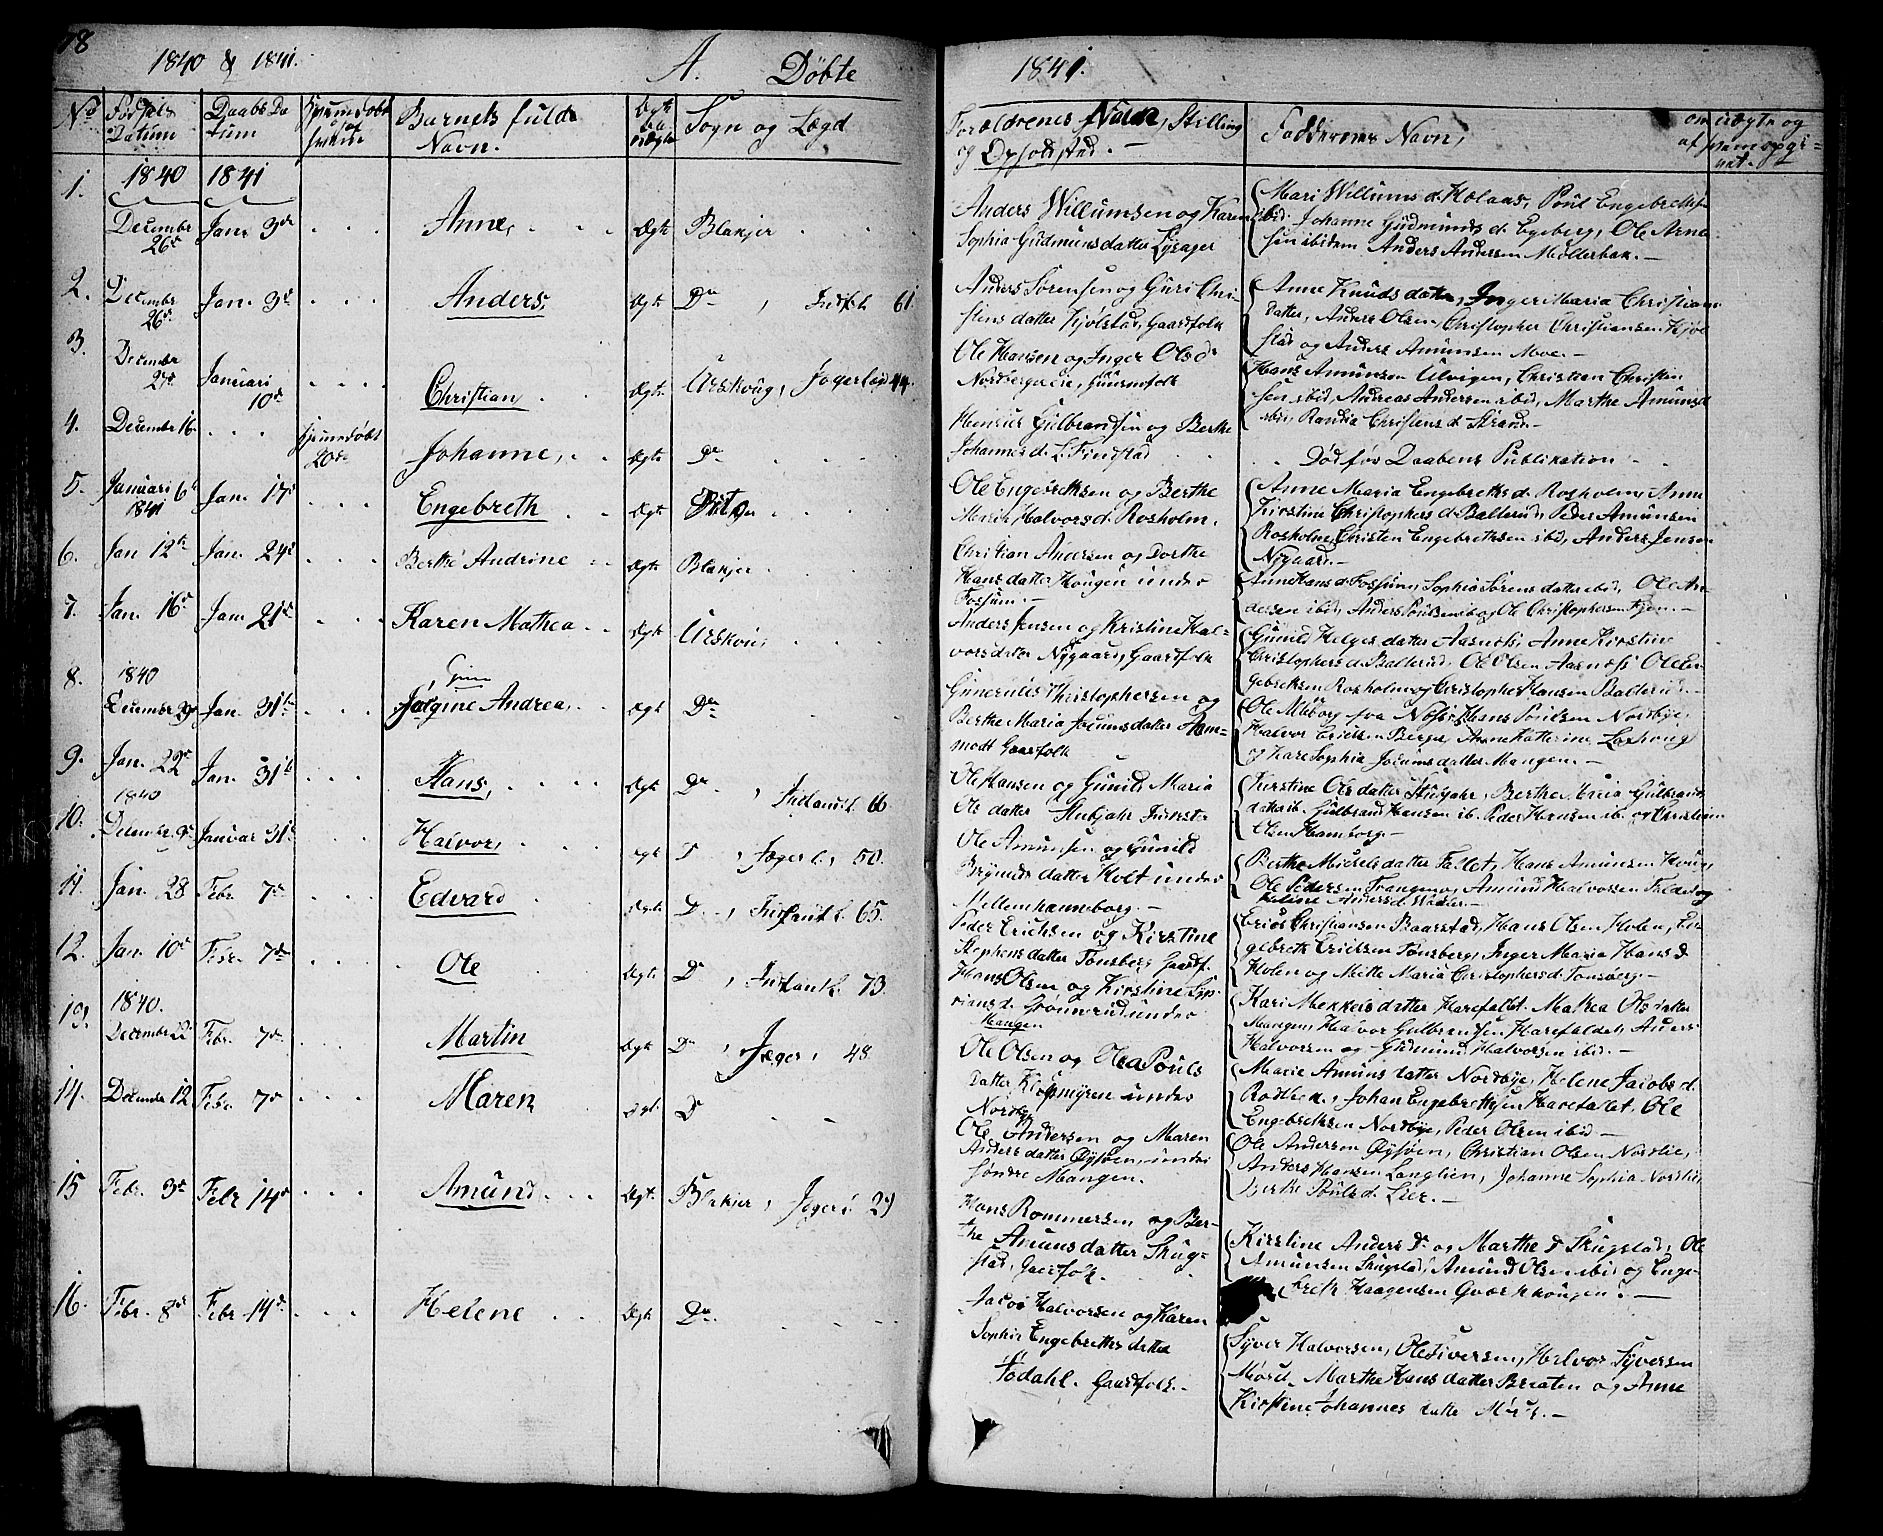 78
1840 & 1841. A. Døbte
1841.
No Fødsels Datum Daabs Datum Hjemmedøbt Barnets fulde Navn. Ægte Sogn og Lægd
Forældrenes Navn, Stilling og Opholdsted. —
Fadderenes Navn,
1840 1841
1. Decembr 26de Jan. 3de Anne, Ægte Blakjer
Anders Willumsen og Karen
Sophia Gudmunsdatter Lysager
Mari Willums d. Holaas, Poul Engebretsen
ibid. Johanne Gudmunds d. Egeberg, Ole Arne
sen ibidem Anders Andersen Møllerbak. —
2. Decembr 26de Jan. 3de Anders, Ægte Do, 61.
Anders Sørensen og Guri Chri-
stens datter Kjølstad, Gaardfolk
Anne Knuds datter, Inger Maria Christians
datter, Anders Olsen, Christopher Christiansen Kjøl
stad og Anders Amunsen Moe. —
3. Decembr 27de Januari 10de Christian Ægte Urskoug, Jægerlægd 44.
Ole Hansen og Inger Olsd.
Nordbergseie, Huusmfolk
Hans Amunsen Ulvigen, Christian Christin
sen ibid, Andreas Andersen ibid, Marthe Amunsd
ibid, Randia Christens d. Strand —
4. Decembr 16. Hjemmedøbt 20de Johanne, Ægte Do
Henrich Gulbrandsen og Berthe
Johannes d. L. Finstad
Død før Daabens Publikation
5. Januari 6te 1841 Jan. 17de Engebreth Ægte Do
Ole Engebrethsen og Berthe
Marie Halvors d. Rosholm.
Anne Maria Engebreths d. Rosholm, Anne
Kirstine Christophers d. Ballerud, Peder Amunsen
Rosholm, Christen Engebrethsen ibid, Anders Jensen
Nygaard. —
6. Jan 12te Jan. 24de Berthe Andrine Ægte Blakjer
Christian Andersen og Dorthe
Hans datter Hougen under
Fossum. —
Anne Hans d. Fossum, Sophia Sørens datter ibid, Ole An
dersen ibid, Anders Poulsen ib og Ole Christophersen
7. Jan. 16de Jan 21de Karen Mathea Ægte Urskou,
Anders Jensen og Kristine Hal-
vorsdatter Nygaard, Gaardfolk
Gunild Helges datter Aasnæs, Anne Kirstine
Christophers d. Ballerud, Ole Olsen Aasnæs Ole En
gebrethsen Rosholm og Christopher Hansen Ballerud. —
8. 1840 Decembr 29 Jan. 31te Andrea, Ægte Do
Gunerius Christophersen og
Berthe Maria Jocumsdatter Ham-
modt Gaardfolk
Ole fra Næs, Hans Poulsen Nordbye,
Halvor Erichsen Berger Anne Katterine
og Kare Sophia Jocumsdatter Mangen. —
9. Jan. 22de Jan. 31te Hans, Ægte Do, 66
Ole Hansen og Gunild Maria
Ols datter Stubjahr
Kirstine Ols datter Stubjahr, Berthe Maria Gulbrands
datter ib. Gulbrand Hansen ib. Peder Hansen ib. og Christian
Olsen Hamborg. —
10. 1840 Decembr 9de Januar 31te Halvor, Ægte D, Jægerl, 50.
Ole Amunsen og Gunild
Brynilds datter Holt under
Mellemhammborg. —
Berthe Michels datter Fallet, Hans Amunsen Houg,
Ole Pedersen Trangen og Amund Halvorsen Faldet og
Helene Anders d.
11. Jan. 28 Febr. 7de Edvard Ægte D, 65.
Peder Erichsen og Kirstine
Stephens datter Tønsberg Gaardf.
Erics Christiansen Baarstad, Hans Olsen Holen, En
gebreth Erichsen Tønsberg, Inger Maria Hans d
Holen og Mitte Maria Christophers d. Tønsberg. —
12. Jan. 10de Febr. 7de Ole Ægte Do, 73.
Hans Olsen og Kirstine
d. Grønnerud under
Mangen
Kari Mekkels datter Harefallet. Mathea Ols datter
Mangen, Halvor Gulbrandsen Harefaldet, Anders
Halvorsen og Gudmund Halvorsen ibid. —
13. 1840. Decembr Febr. 7de Martin Ægte Do, Jæger, 48
Ole Olsen og Olea Pouls
datter under
Nordbye
Marie Amunds datter Nordbye, Helene Jacobs d.
Johan Engebrethsen Harefallet, Ole
Engebrethsen Nordbye, Peder Olsen ibid —
14. Decembr 12 Febr. 7de Maren Ægt. D
Ole Andersen og Maren
Anders datter Øysøen, under
Søndre Mangen.
Ole Andersen Øysøen, Christian Olsen Nordlie,
Anders Hansen Langlien, Johanne Sophia Nordlie
Berthe Pouls d. Lier. —
15 Febr. 3de Febr 14de Amund, Ægt. Blakjer, Jæger 29
Hans Rommersen og Ber-
the Amunsdatter Skug-
stad, Gaardfolk.
Kirstine Anders D. og Marthe d Skugstad, Ole
Amunsen Skugstad, Amund Olsen ibid og Enge-
breth Haagensen
16. Febr. 8de Febr 14de Helene Ægte Do.
Jacob Halvorsen og Karen
Sophie Engebreths datter
Gaardfolk. —
Syver Halvorsen, Ole Siversen, Halvor Syversen
Mørud. Marthe Hans datter Braaten og Anne
Kirstine Johannes datter —